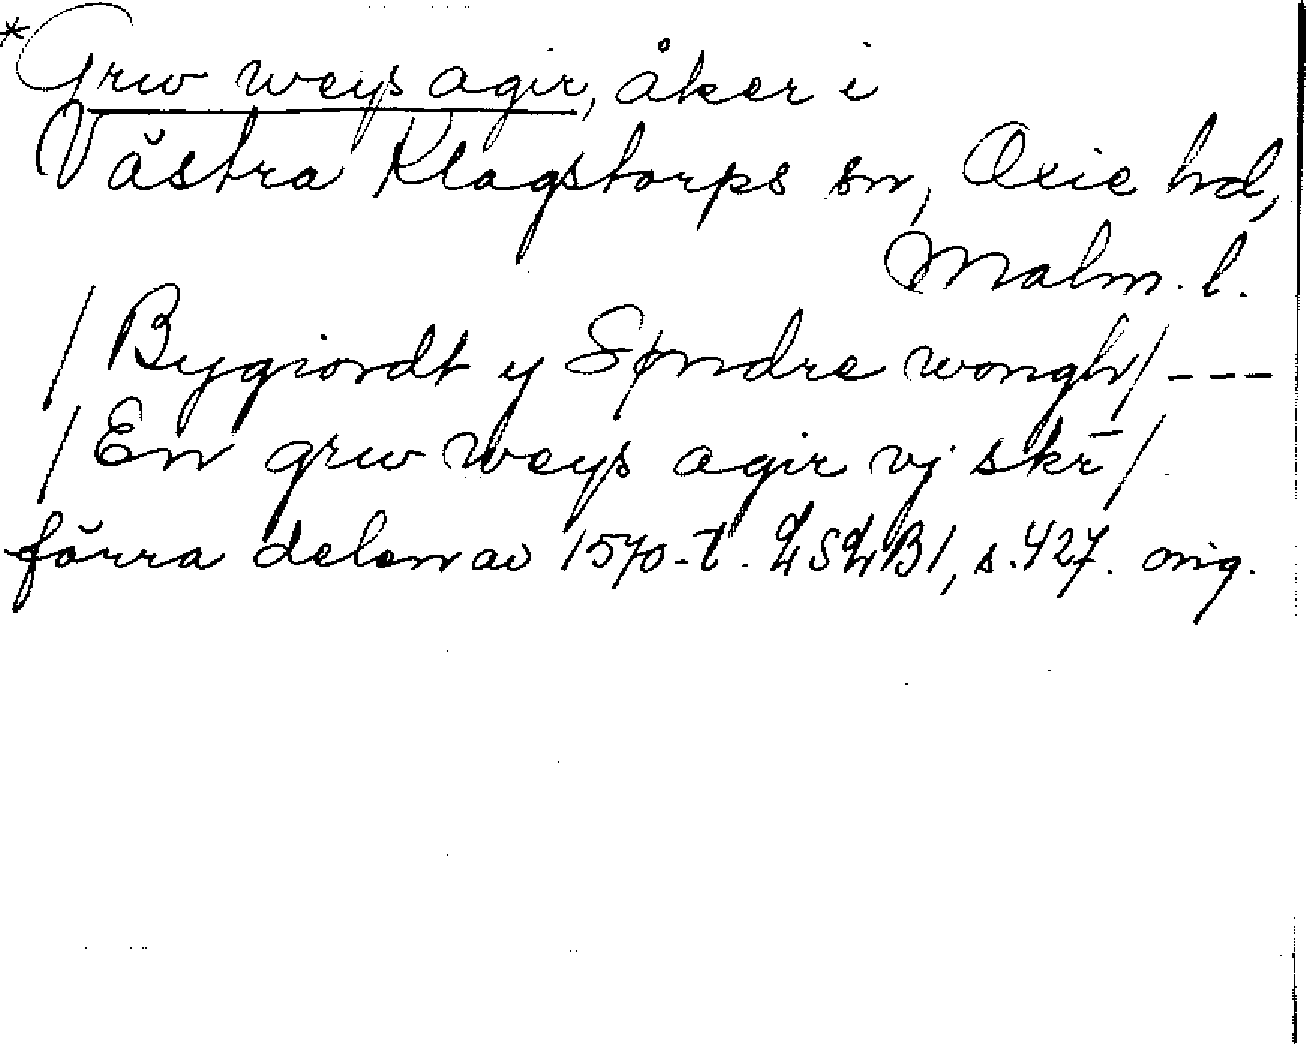 *Grw weys agir, åker i
Västra Klagstorps sn, Oxie hd,
Malm. l.
/ Bygiordt y Søndre wongh/ ---
/ En grw weys agir vj skr̄ /
förra delen av 1570-t. LSLB1, s. 427. orig.